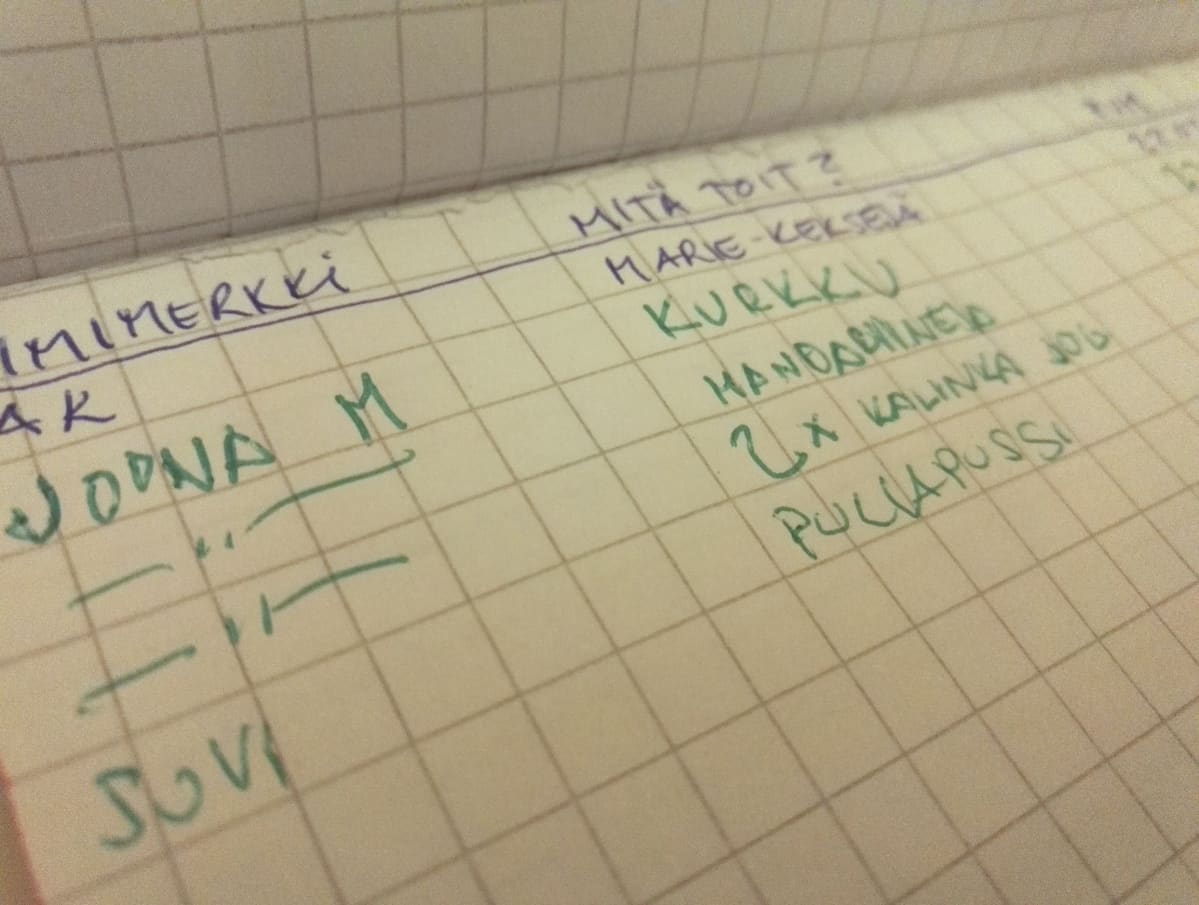 IMIMERKKI MITÄ TOIT? PVM
AK MARIE-KEKSEJÄ
JOONA M KURKKU
—"— MANDARIINEJA
—"— 2 X KALINKA JOG
SUVI PULLAPUSSI